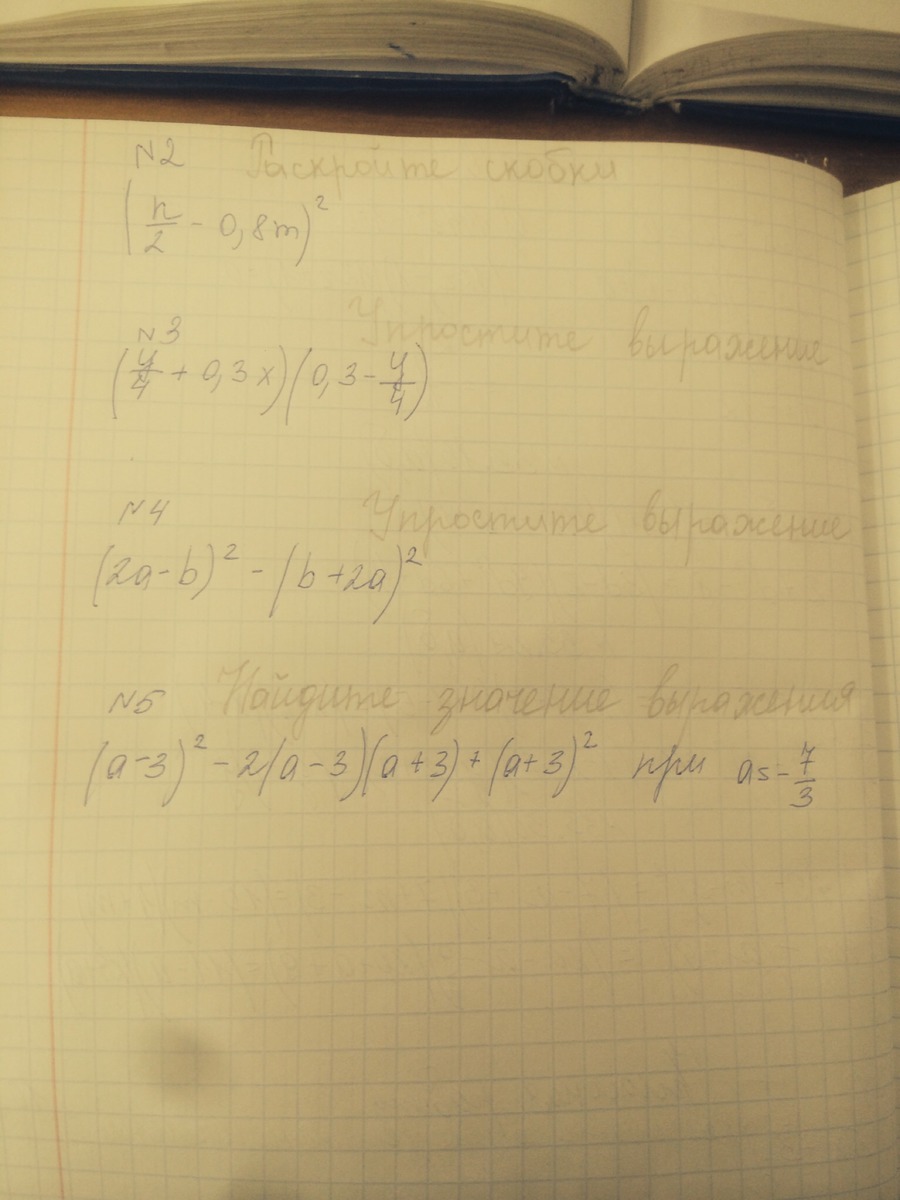 N2 Раскройте скобки
(n/2 - 0,8m)²
N3 Упростите выражение
(y/4 + 0,3x)(0,3 - y/4)
N4 Упростите выражение
(2a-b)² - (b+2a)²
N5 Найдите значение выражения
(a-3)² - 2(a-3)(a+3) + (a+3)² при a = -7/3